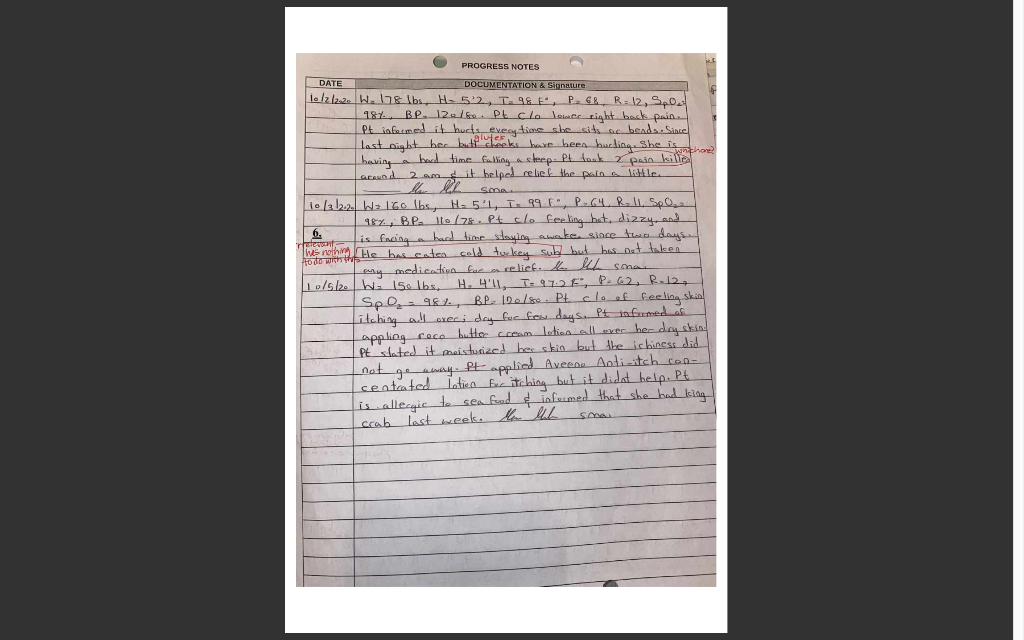 PROGRESS NOTES
DATE DOCUMENTATION & Signature
10/2/2020 W= 178 lbs, H= 5'2, T= 98 F°, P= 68, R=12, SpO2=
98%, BP= 120/80. Pt c/o lower right back pain.
Pt informed it hurts everytime she sits or bends. Since
glutes
last night her butt cheeks have been hurting. She is
which one?
having a hard time falling asleep. Pt took 2 pain killer
around 2 am & it helped relief the pain a little.
sma.
10/3/2020 W= 160 lbs, H= 5'1, T= 99 F°, P=64, R=11, SpO2=
98%, BP= 110/78. Pt c/o feeling hot, dizzy, and
6.
is facing a hard time staying awake since two days.
irrelevant - has nothing to do with this
He has eaten cold turkey sub but has not taken
any medication for a relief. sma.
10/5/20 W= 150 lbs, H= 4'11, T= 97.2 F°, P= 62, R=12,
SpO2 = 98%, BP= 120/80. Pt c/o of feeling skin
itching all over; dry for few days. Pt informed of
appling coco butter cream lotion all over her dry skin.
Pt stated it moisturized her skin but the ichiness did
not go away. Pt applied Aveeno Anti-itch con-
centrated lotion for itching but it didnt help. Pt
is allergic to sea food & informed that she had king
crab last week. sma.